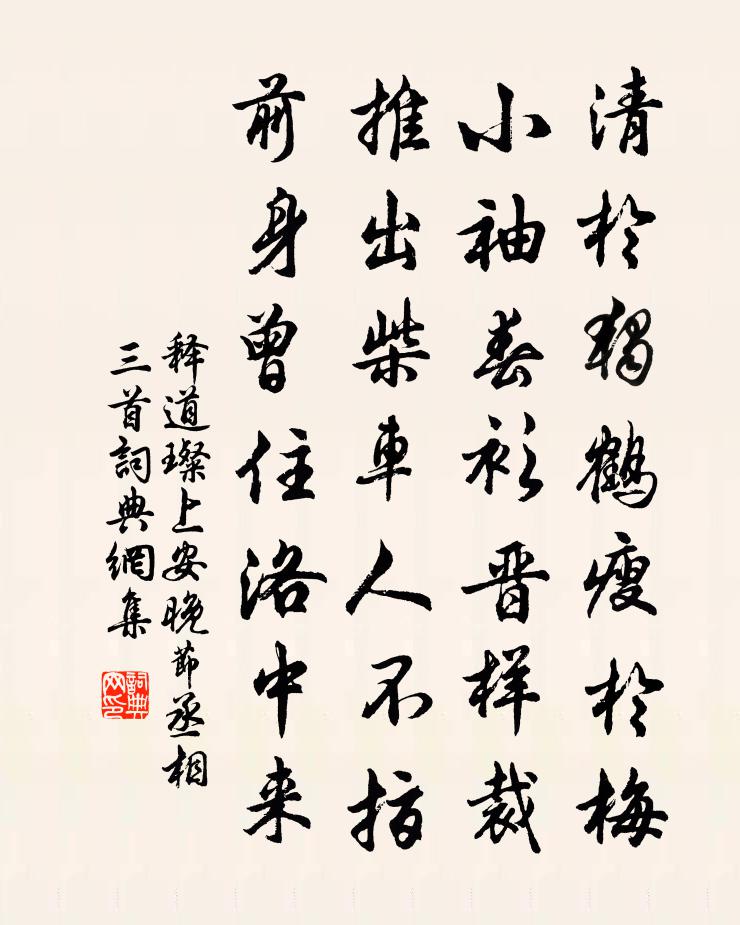 清於獨鶴瘦於梅
小袖春衫晋样裁
推出柴車人不指
前身曾住洛中来
释道璨上安晚節丞相
三首詞典網集
詞典网印